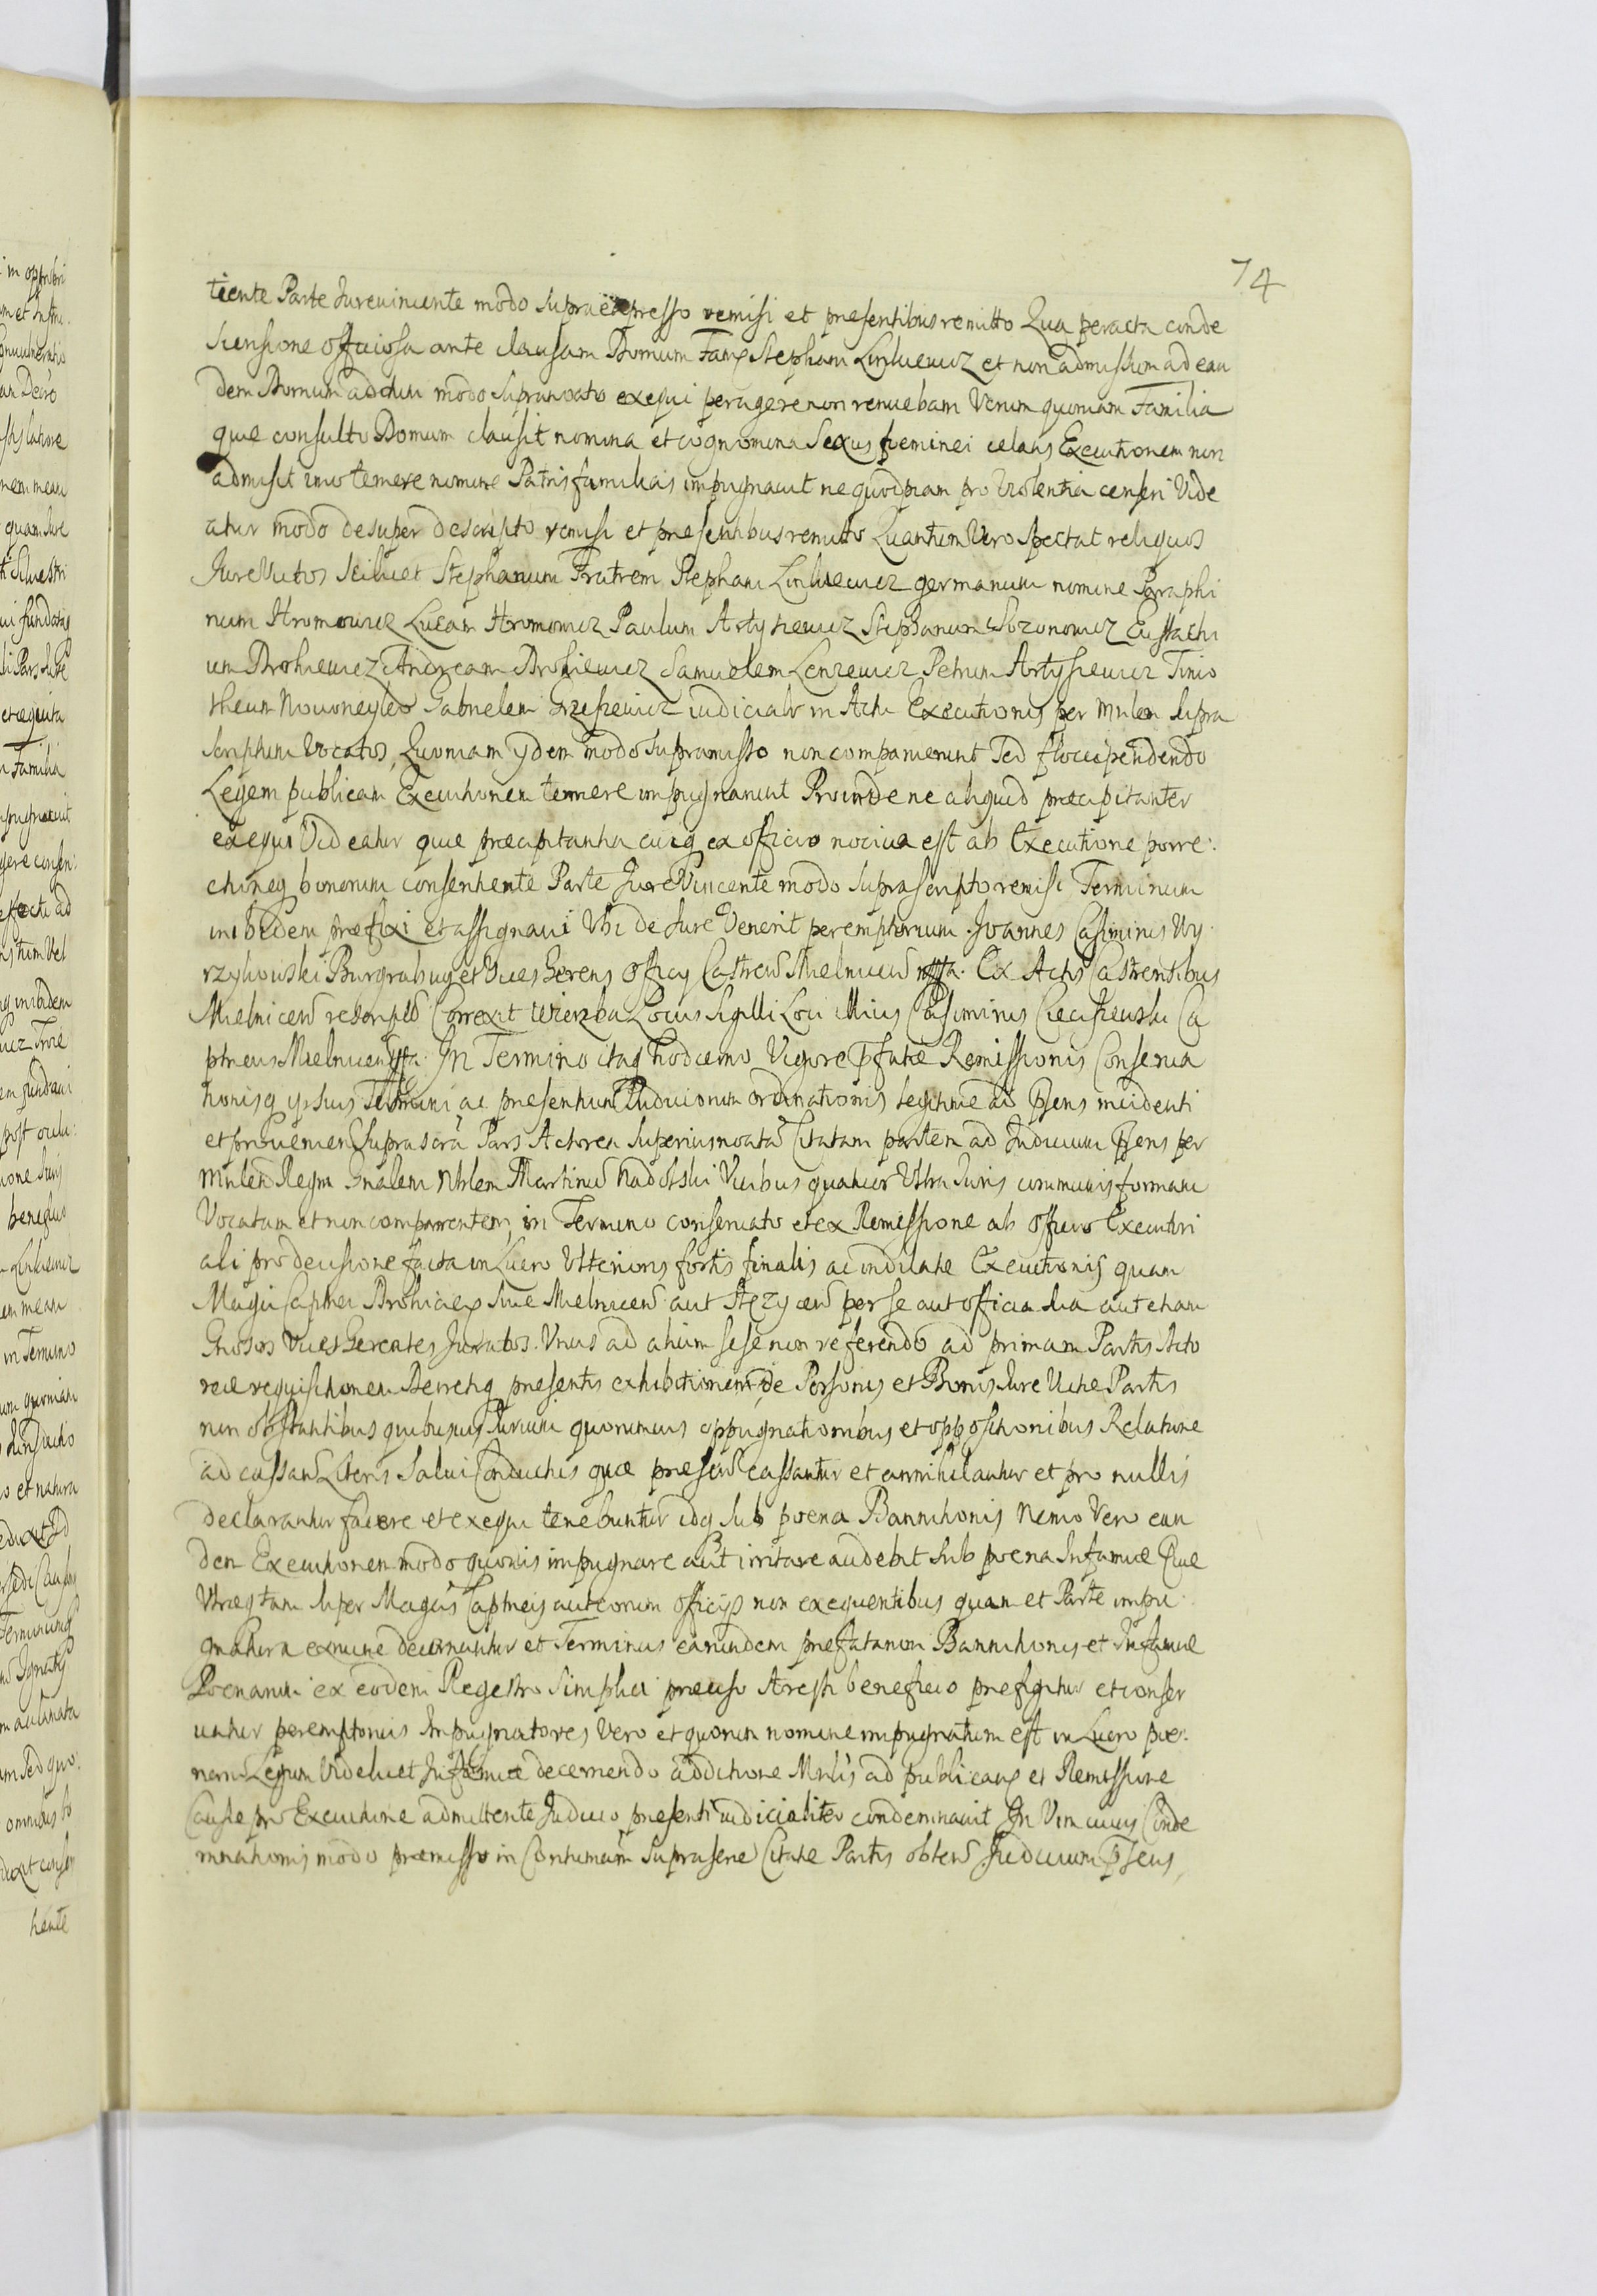 74
tiente Parte Jurevincente modo supraexpresso remisi et presentibus remitto Qua peracta conde
scensione officiosa ante clausam Domum Stephani Linkiewicz et non admissum ad ean
dem Domum actum modo supranotato exequi peragere non renuebam Verum quoniam Familia
que consulto Domum clausit nomina et cognomina Sexus foeminei celans Executionem non
admisit imo temere nomine Patris familias impugnavit ne quidpiam pro Violentia censeri Vide
atur modo desuper descripto remisi et presentibus remitto Quantum Vero spectat reliquos
JureVictos scilicet Stephanum Fratrem Stephani Linkiewicz germanum nomine Paraphi
num Hromowicz Lucam Hromowicz Paulum Artysiewicz Stephanum Eustachi
um Drohiewicz Andream Drohiewicz Samuelem Lenzewicz Petrum Artysiewicz Timo
theum Gabrielem Grzesiewicz iudicialr in Actu Executionis per Mnlen supra
scriptum Vocatos, Quoniam ydem modo supramisso non comparuerunt sed floccipendendo
Legem publicam Executionem temere impugnarunt Proinde ne aliquid precipitanter
exequi Videatur que precipitantia cuiq ex officio nociva est ab Executione porre:
ctioneq bonorum consentiente Parte JureVincente modo suprascripto remisi Terminum
inibidem prefixi et assignavi Ubi de Jure Venerit peremptorium. Joannes Casimirus Wy
rzykowski Burgrabius et Vices Gerens Officy Castren Mielnicen mppa. Ex Actis Castrensibus
Mielnicen rescriptu Correxit Wierzba Locus Sigilli Loci illius Casimirus Cieciszewski Ca
ptneus Mielnicen mppa. In Termino itaq hodierno Vigore pfatae Remissionis Conserva
tionisq ipsius Termini ac presentium Iudiciorum ordinationis legitime ad psens incidenti
et provenien Suprascra Pars Actorea superius noata Citatam partem ad Judicium psens per
Mnlem Regni Gnalem Nblem Martinu Nadolski Vicibus quatuor Ultra Juris communis formam
Vocatam et non comparentem, in Termino conservato et ex Remissione ab Officio Executori
ali pro decisione facta in Lucro Ulterioris fortis finalis ac indilate Executionis quam
Magci Captnei Drohicen sive Mielnicen aut per se aut officia sua aut etiam
Gnosos Vices Gerentes Juratos. Unus ad alium sese non referendo ad primam Partis Acto
ree requisitionem Decretiq presentis exhibitionem, de Personis et Bonis Jure Victe Partis
non obstantibus quibusvis Jurium quorumvis oppugnationibus et oppositionibus Relatione
ad cassan Literis Salvi Conductus que presen cassantur et annihilantur et pro nullis
declarantur facere et exequi tenebuntur idq sub poena Bannitionis Nemo Vero ean
dem Executionem modo quovis impugnare aut irritare audebit sub poena Infamie Que
Utraeq tam super Magcis Captneis aut eorum officys non exequentibus quam et Parte impu
gnatura exnunc decernuntur et Terminus earundem prefatarum Bannitionis et Infamie
Poenarum ex eodem Regestro simplici preciso Aresti beneficio prefigitur et conser
vatur peremptorius Impugnatores Vero et quorum nomine impugnatum est in Lucro poe:
narum Legum Videlicet Infamie decernendo additione Mnlis ad publican et Remissione
Cause pro Executione admittente Judicio presenti iudicialiter condemnavit In Vim cuius Conde
mnationis modo premisso in Contumam suprascre Citate Partis obten Judicium psens,